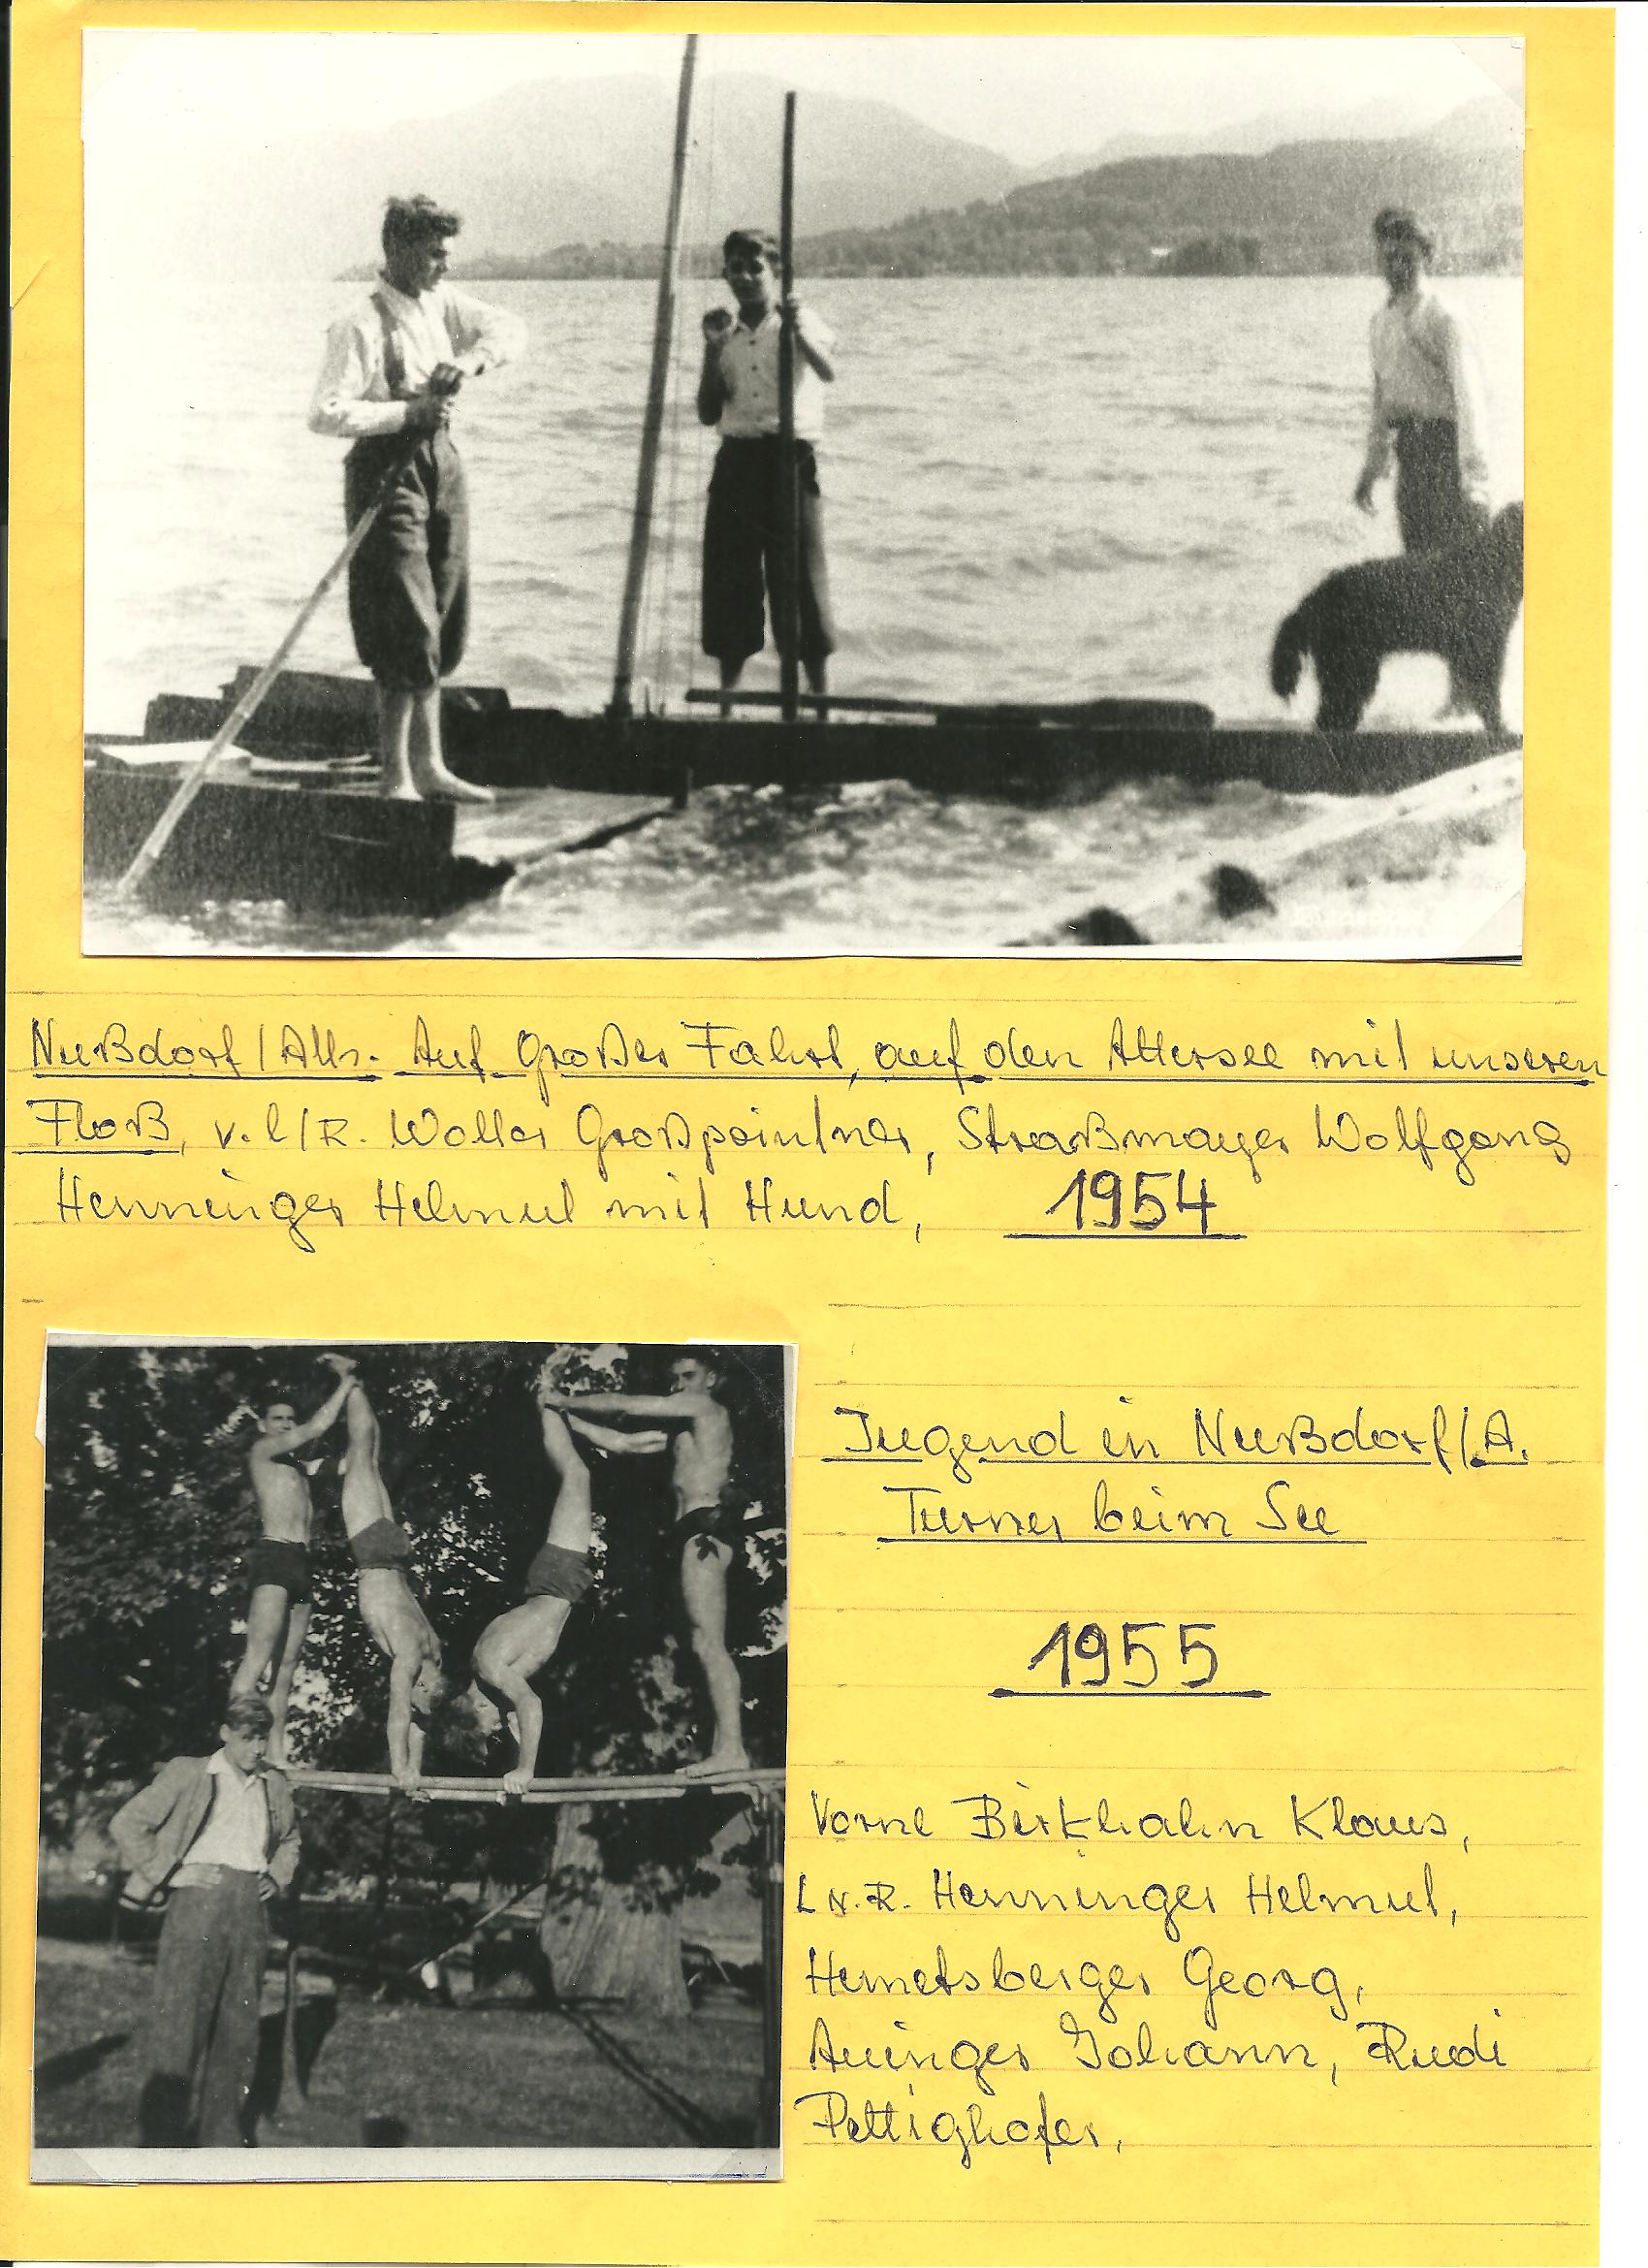 Nußdorf/Atts. Auf Großer Fahrt, auf den Attersee mit unseren
Floß, v.l/R. Wolter Großpointner, Straßmayer Wolfgang
Henninger Helmut mit Hund, 1954
Jugend in Nußdorf/A.
Turner beim See
1955
Vorne Birkhahn Klaus,
L N.R. Henninger Helmut,
Hemetsberger Georg,
Auinger Johann, Rudi
Pettighofer,